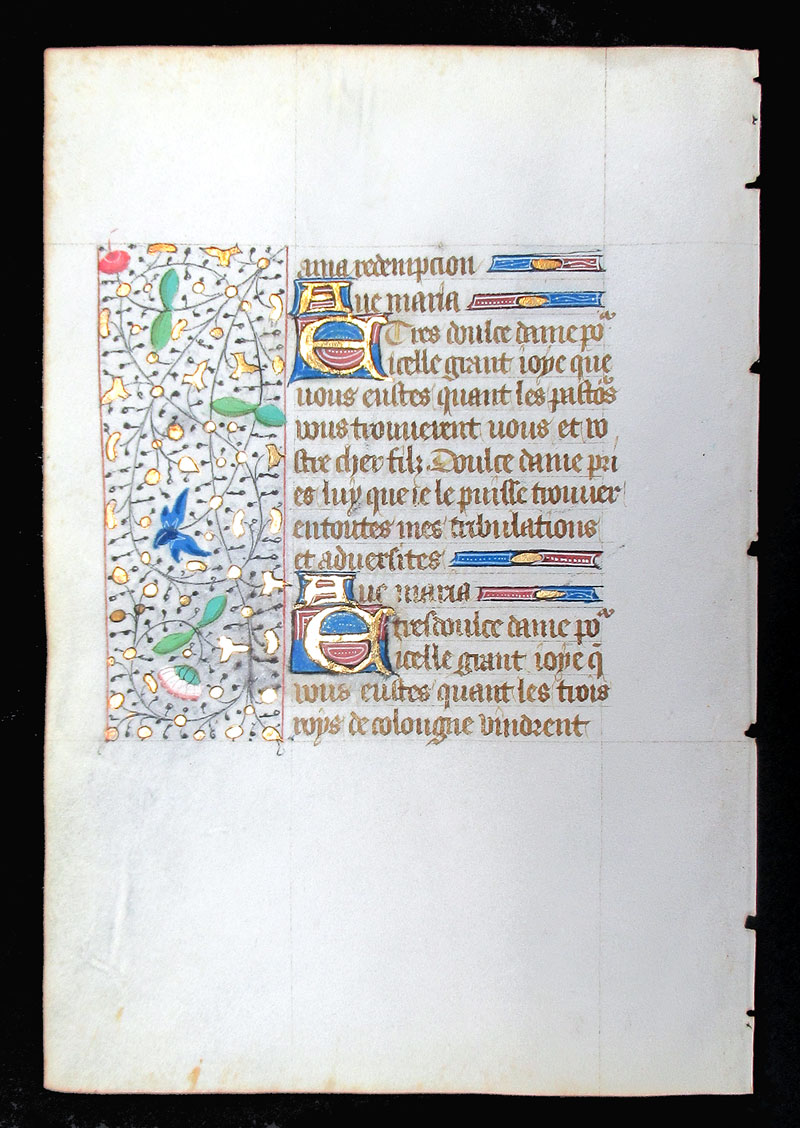 ama redempcion
Aue maria
E Tres doulce dame po͛
icelle grant ioye que
uous eustes quant les past͛s
uous trouuerent uous et vo
stre cher filz. Doulce dame pri
es luy que ie le puisse trouuer
entoutes mes tribulations
et aduersites
Aue maria
E tresdoulce dame po͛
icelle grant ioye q̄
uous eustes quant les trois
roys de colougne vindrent